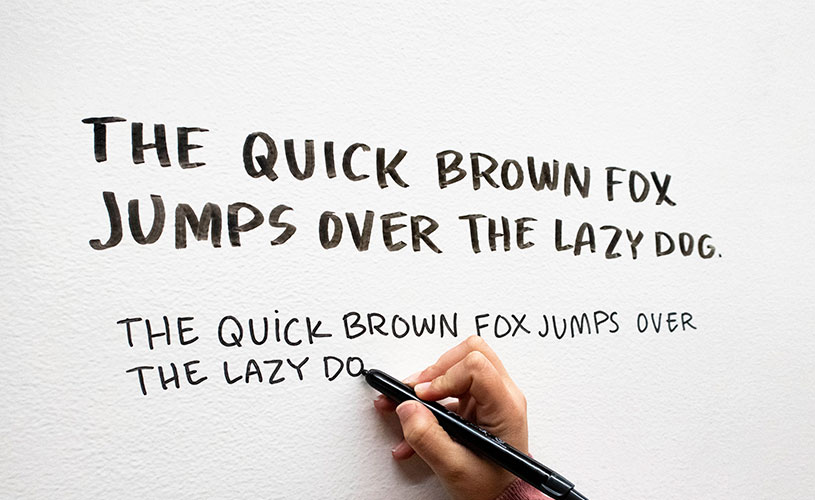 THE QUICK BROWN FOX
JUMPS OVER THE LAZY DOG.
THE QUiCK BROWN FOX JUMPS OVER
THE LAZY DO